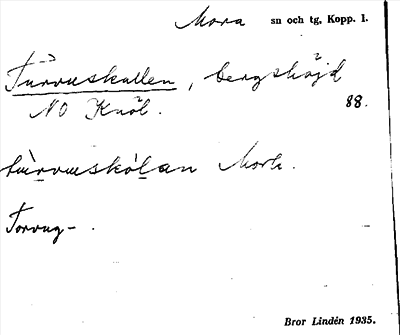 Mora sn och tg, Kopp. l.
Turvuskallen, bergshöjd
NO Knöl. 88.
tùrvuskòlan Mork.
Torvug-.
Bror Lindén 1935.